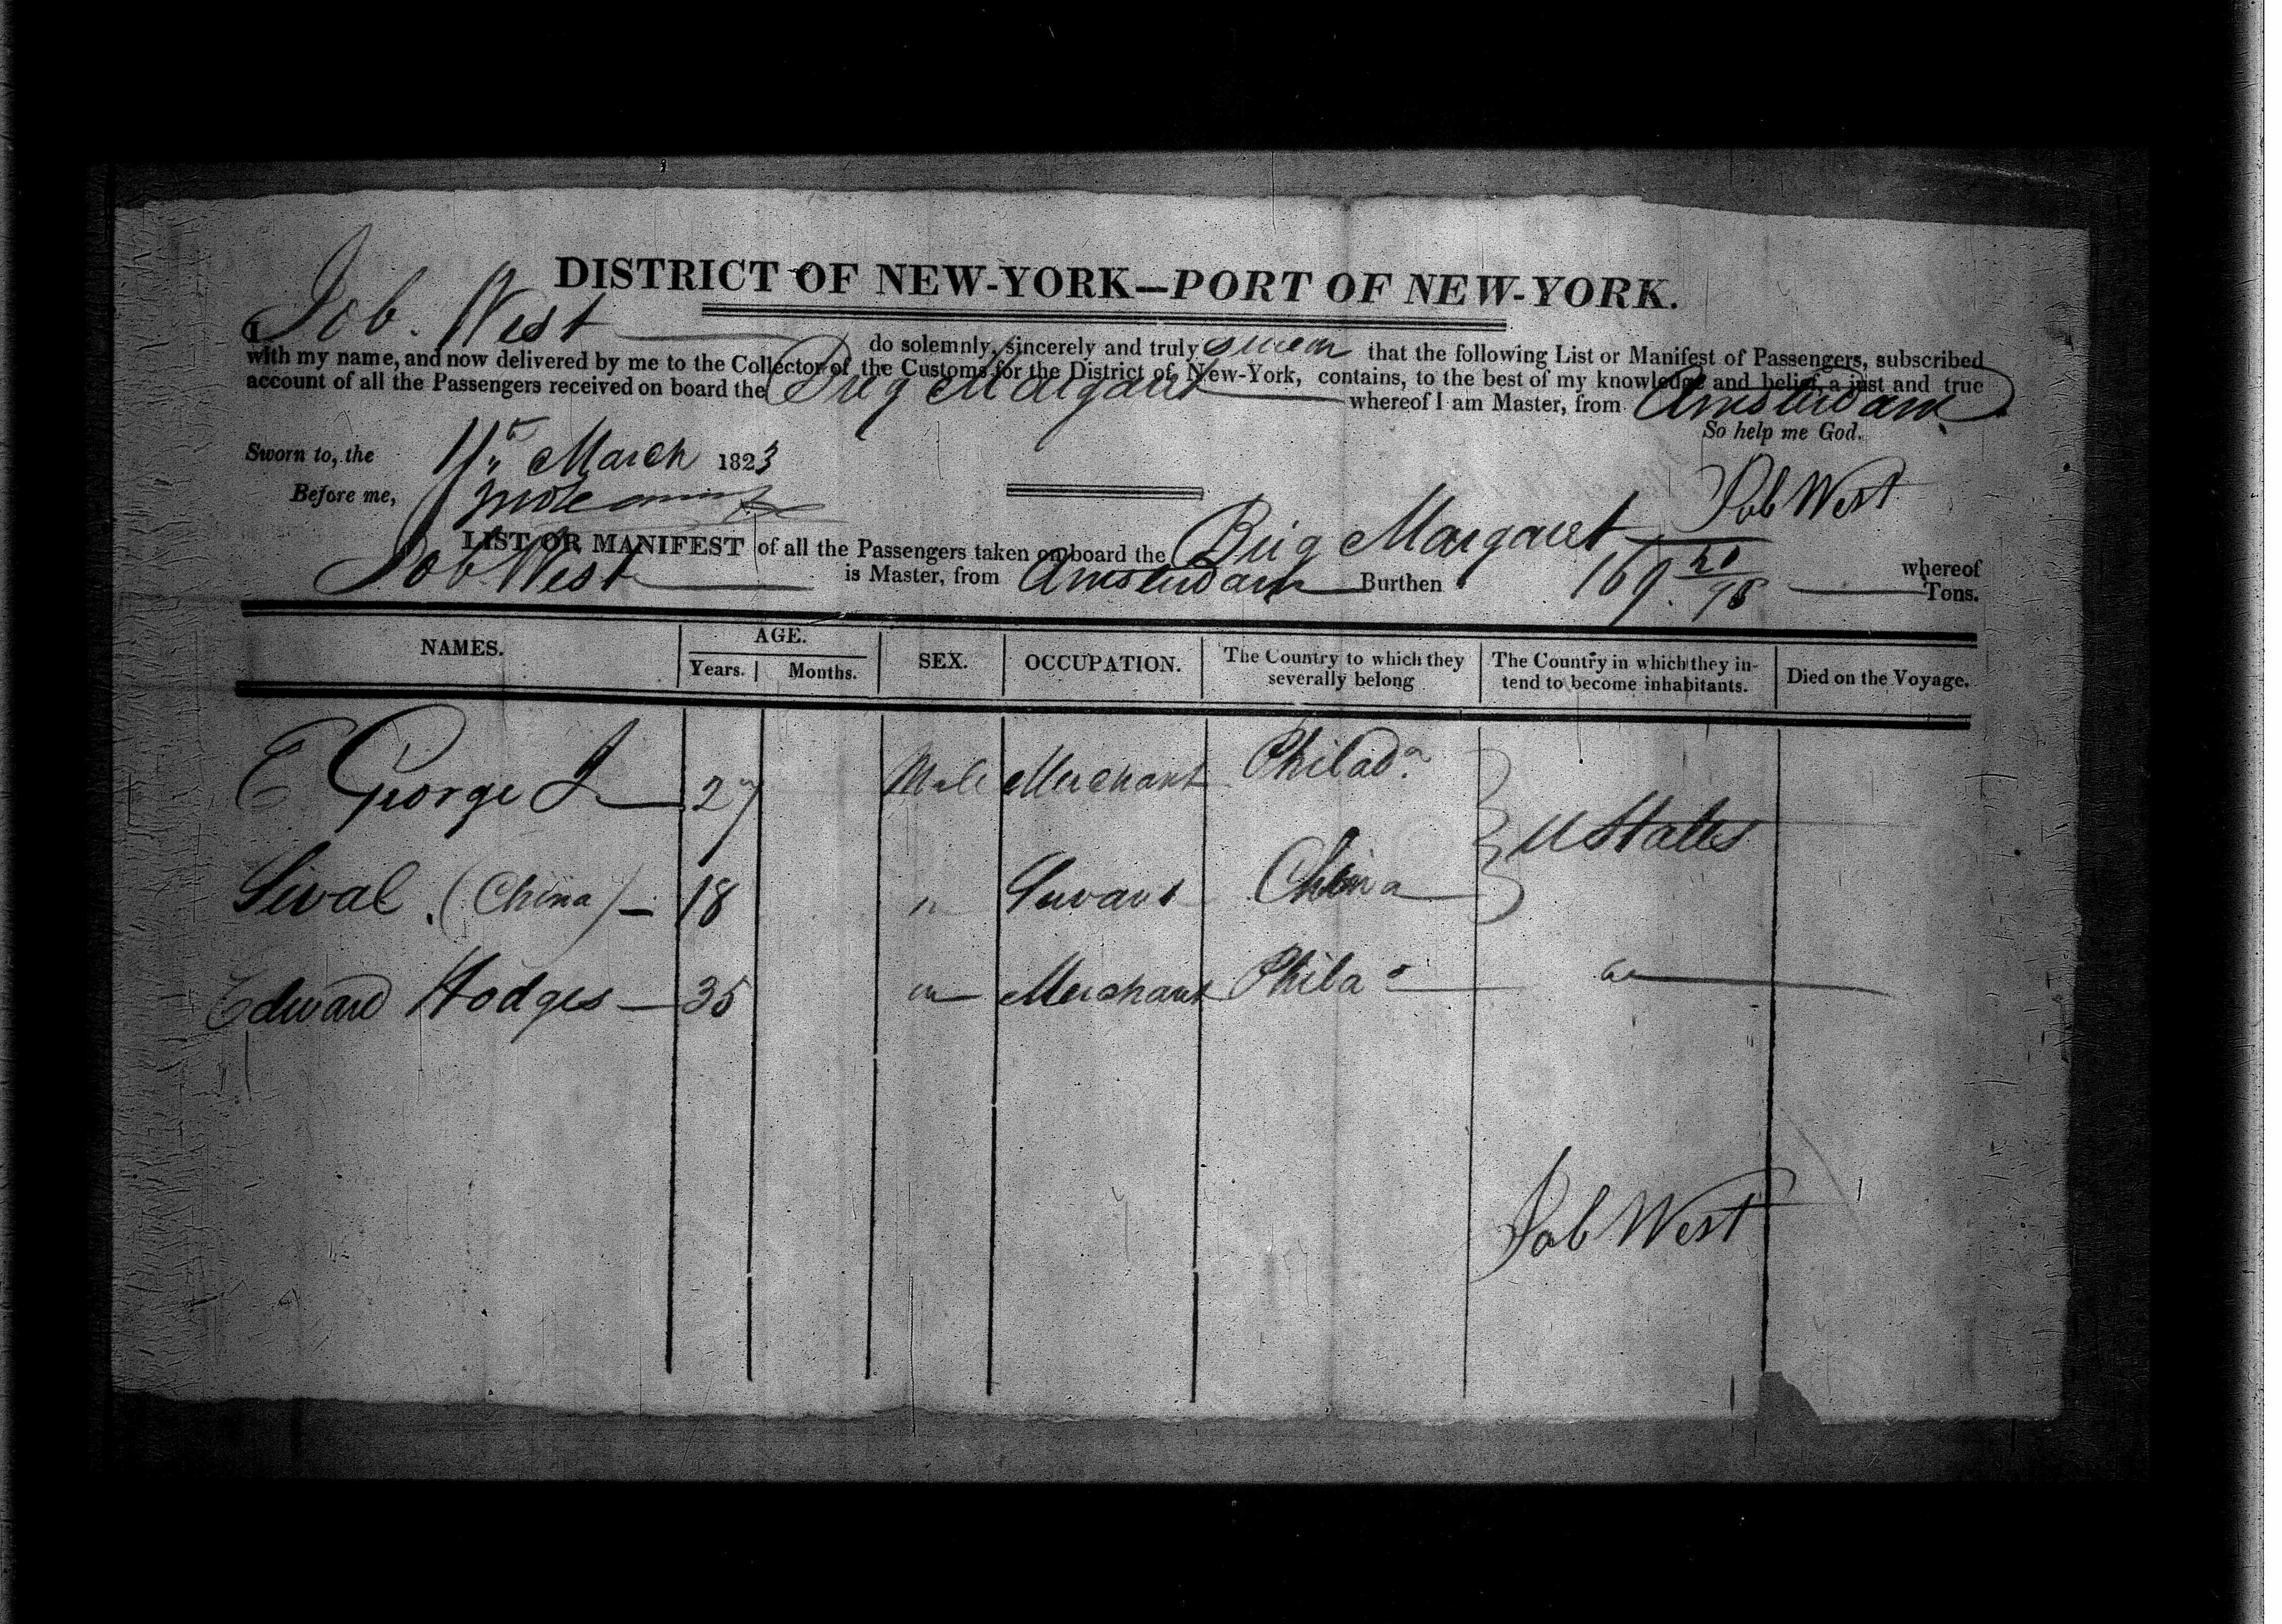 DISTRICT OF NEW-YORK—PORT OF NEW-YORK.
I Job. West do solemnly, sincerely and truly swear that the following List or Manifest of Passengers, subscribed
with my name, and now delivered by me to the Collector of the Customs for the District of New-York, contains, to the best of my knowledge and belief, a just and true
account of all the Passengers received on board the Brig Margaret whereof I am Master, from Amsterdam
So help me God.
Sworn to, the 11th March 1823
Before me,
Job West
LIST OR MANIFEST of all the Passengers taken on board the Brig Margaret whereof
Job West is Master, from Amsterdam Burthen 169. 20/95 Tons.
NAMES. AGE. SEX. OCCUPATION. The Country to which they severally belong The Country in which they intend to become inhabitants. Died on the Voyage.
Years. Months.
E George J 27 Male Merchant Philada
U States
(China) 18 " Servant China
Edward Hodges 35 Merchant Phila
Job West